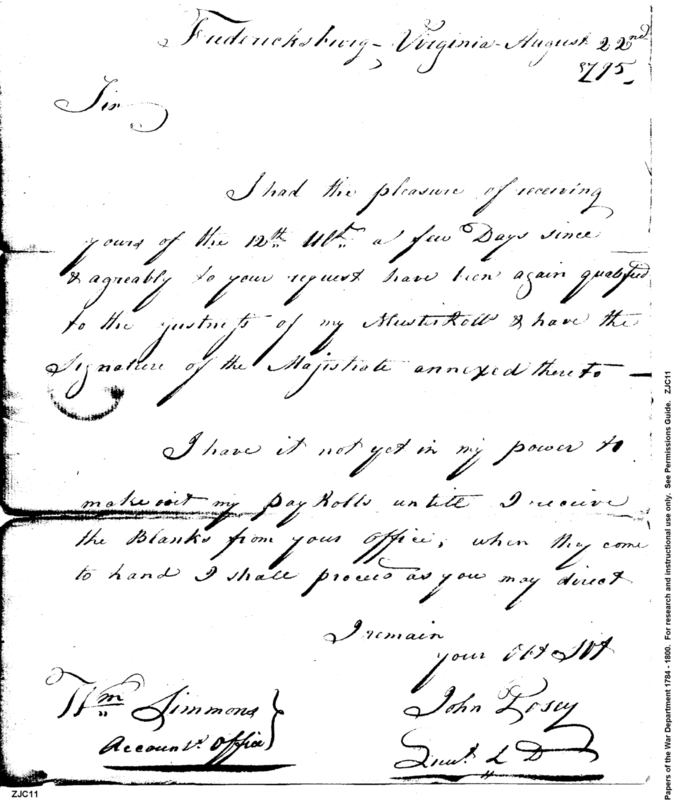 Fredericksburg - Virginia - August 22nd
1795
Sir
I had the pleasure of receiving
yours of the 12th Ult. a few Days since
& agreably to your request have been again qualified
to the justness of my Musterroll & have the
Signature of the Majistrate annexed thereto —
I have it not yet in my power to
make out my pay Rolls untill I receive
the Blanks from your office, when they come
to hand I shall proceed as you may direct
I remain
your Obt Svt
Wm Simmons
Accountt Office
John Posey
Lieut. L D
Papers of the War Department 1784 - 1800. For research and instructional use only. See Permissions Guide. ZJC11
ZJC11